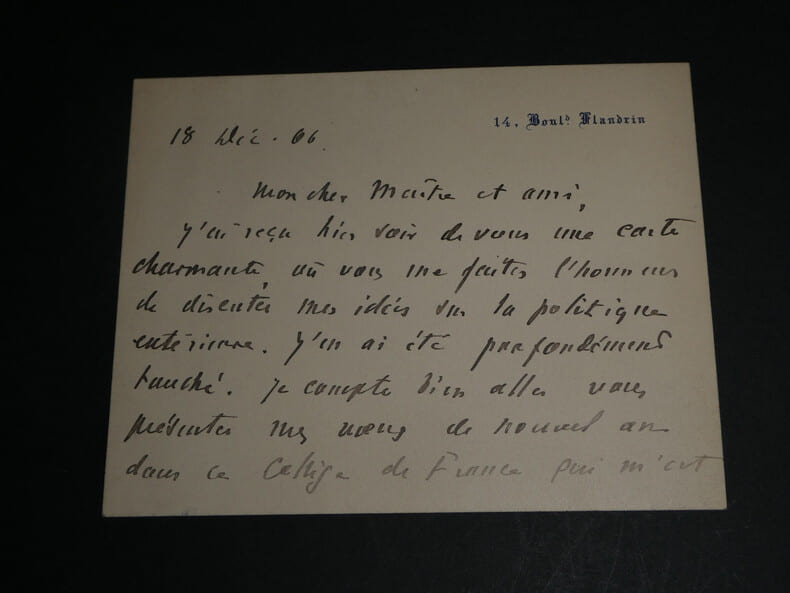 14, Boul.d Flandrin
18 Déc. 06.
Mon cher Maître et ami,
J'ai reçu hier soir de vous une carte
charmante, où vous me faites l'honneur
de discuter mes idées sur la politique
extérieure. J'en ai été profondément
touché. Je compte bien aller vous
présenter mes vœux de nouvel an
dans ce Collège de France qui m'est